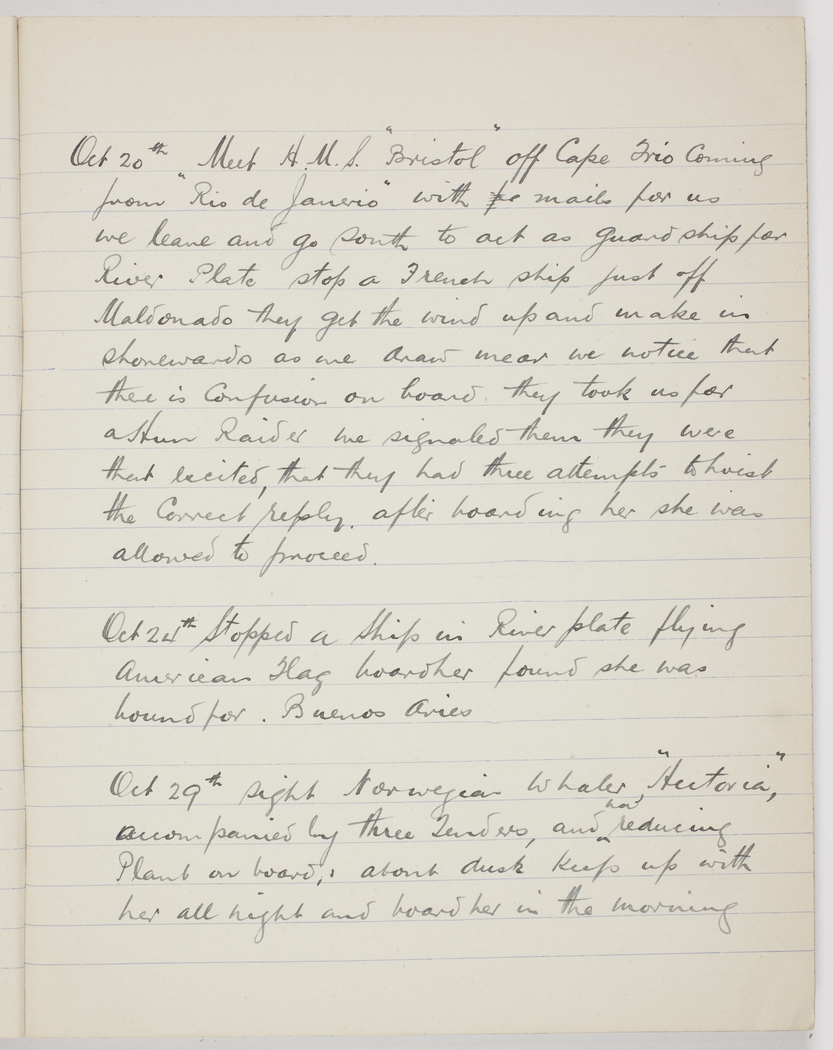 Oct 20th Meet H.M.S. "Bristol" off Cape Frio Coming
from "Rio de Janerio" with mails for us
we leave and go South to act as guard ship for
River Plate stop a French ship just off
Maldonado they get the wind up and make in
shorewards as we draw near we notice that
thee is Confusion on board they took us for
a Hun Raider we signaled them they were
that excited, that they had three attempts to hoist
the Correct reply. after boarding her she was
allowed to proceed.
Oct 24th Stopped a Ship in River plate flying
American Flag board her found she was
bound for . Buenos Aries
Oct 29th sight Norwegian Whaler, "Hectoria",
accompanied by three Tenders, and has reducing
Plant on board, about dusk keep up with
her all night and board her in the morning